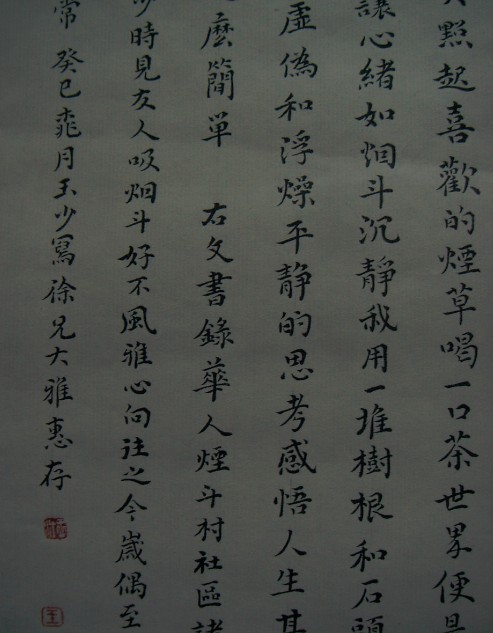 點起喜歡的煙草喝一口茶世界便是
讓心緒如烟斗沉靜我用一堆樹根和石頭
虛偽和浮燥平靜的思考感悟人生其
麼簡單 右文書錄華人煙斗村社區諸
少時見友人吸烟斗好不風雅心向往之今歲偶至
常 癸巳 月玉少寫徐兄大雅惠存